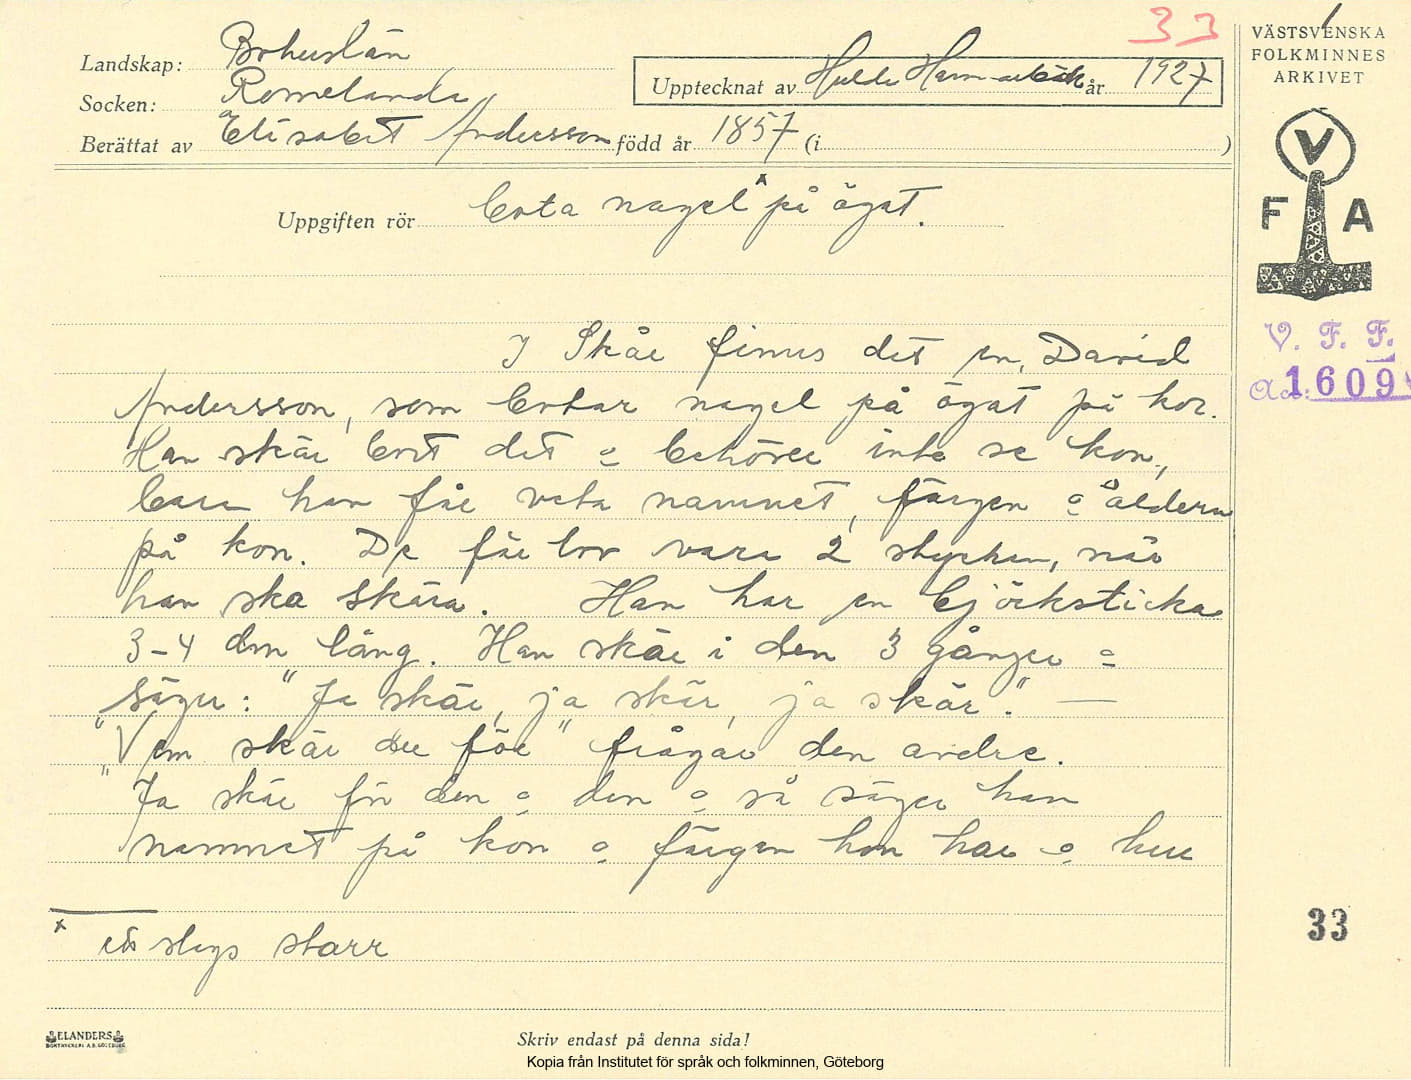 33
VÄSTSVENSKA
FOLKMINNES
ARKIVET
Landskap: Bohuslän
Socken: Romelanda
Upptecknat av Hulda Hammarbäck år 1927
Berättat av Elisabet Andersson född år 1857 (i )
Uppgiften rör Bota nagel x på ögat.
V
F A
V. F. F.
Acc: 1609
I Skår finns det en, David
Andersson, som botar nagel på ögat på kor.
Han skär bort det o behöver inte se kon,
bara han får veta namnet, färgen o åldern
på kon. De får lov vara 2 stycken, när
han ska skära. Han har en björksticka
3-4 dm lång. Han skär i den 3 gånger o
säger: "Ja skär, ja skär, ja skär". —
"Vem skär du för" frågar den andre.
"Ja skär för den o den o så säger han
namnet på kon o färgen hon har o hur
x ett slags starr
33
ELANDERS
BOKTRYCKERI A.B. GÖTEBORG
Skriv endast på denna sida!
Kopia från Institutet för språk och folkminnen, Göteborg